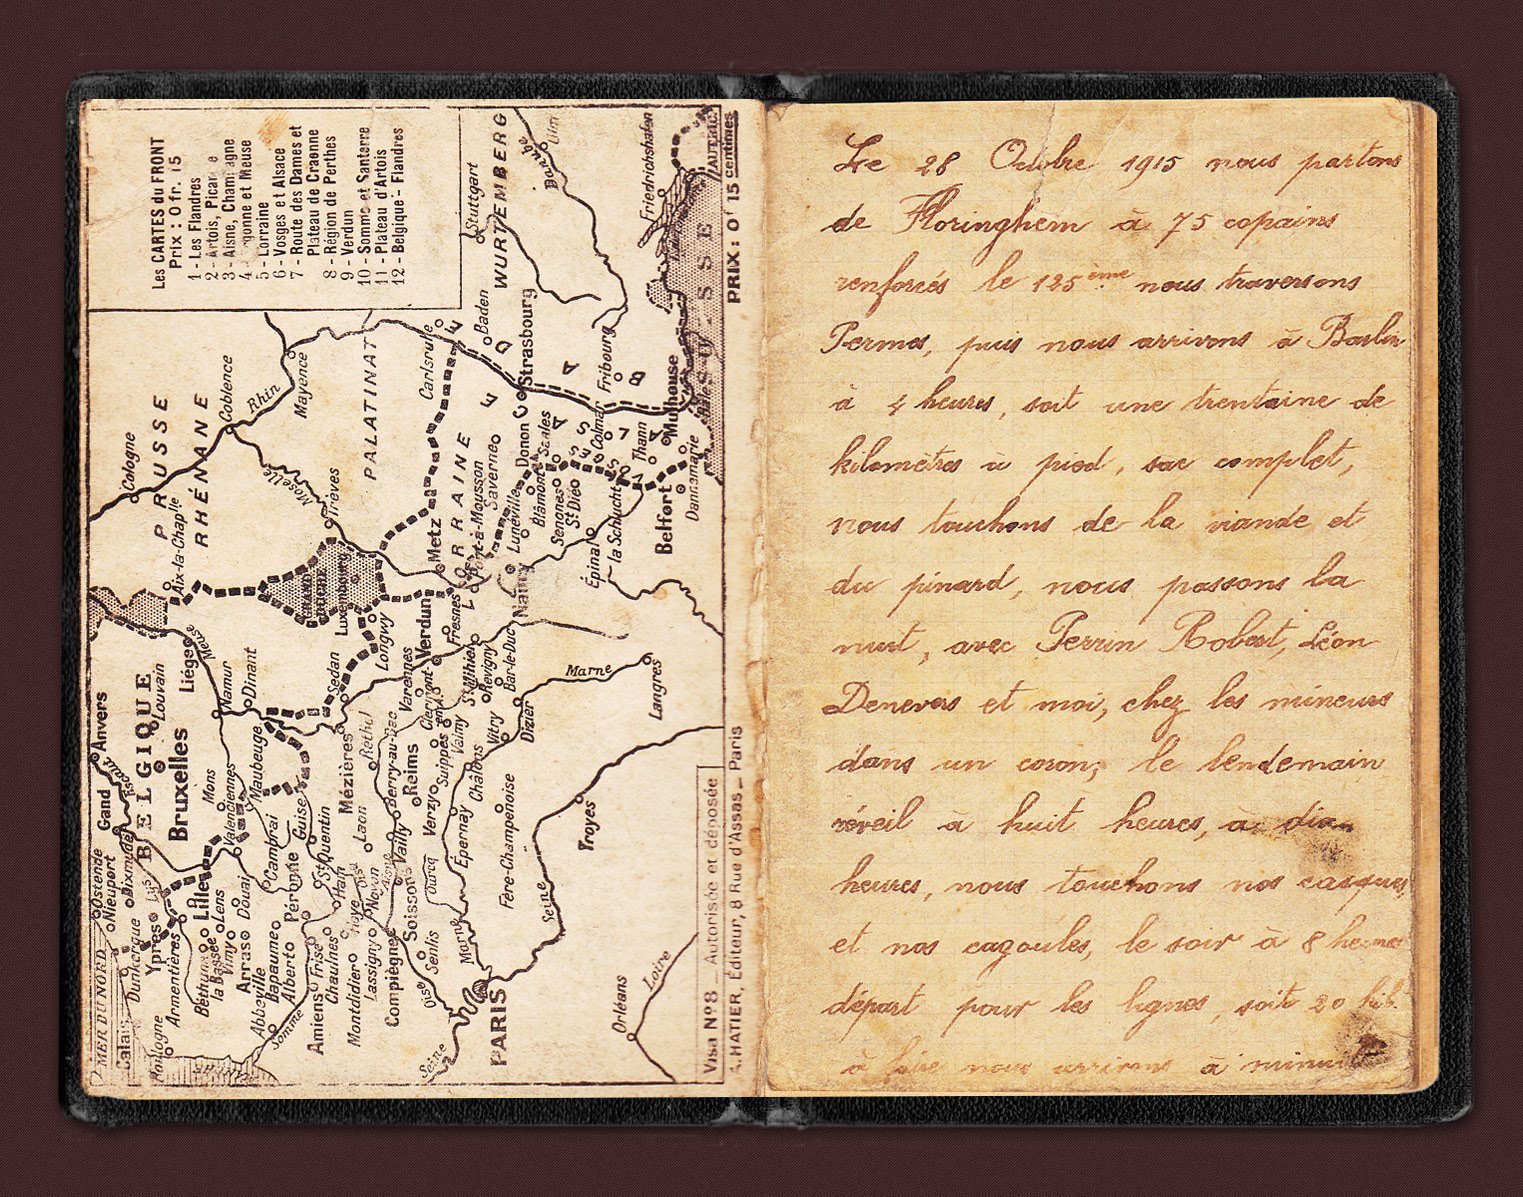 Les CARTES du FRONT
Prix : 0 fr. 15
1 - Les Flandres
2 - Artois, Picardie
3 - Aisne, Champagne
4 - Argonne et Meuse
5 - Lorraine
6 - Vosges et Alsace
7 - Route des Dames et
Plateau de Craonne
8 - Région de Perthes
9 - Verdun
10 - Somme et Santerre
11 - Plateau d'Artois
12 - Belgique - Flandres
MER DU NORD
Calais
Boulogne
Dunkerque
Ostende
Nieuport
Dixmude
Gand
Anvers
Escaut
BELGIQUE
Louvain
Bruxelles
Liége
Meuse
Aix-la-Chaplle
Cologne
PRUSSE
RHÉNANE
Coblence
Rhin
Mayence
Moselle
Trèves
PALATINAT
Carlsruhe
Ypres
Lys
Armentières
Lille
Béthune
la Bassée
Lens
Vimy
Douai
Arras
Mons
Valenciennes
Maubeuge
Namur
Dinant
GRAND
DUCHÉ
Luxembourg
Abbeville
Bapaume
Cambrai
Albert
Péronne
Somme
Amiens
Frise
Chaulnes
Guise
St Quentin
Ham
Montdidier
Roye
Lassigny
Noyon
Oise
Laon
Mézières
Sedan
Longwy
Rethel
Compiègne
Soissons
Aisne
Vailly
Berry-au-Bac
Reims
Varennes
Verdun
Metz
Clermont
en A.
Fresnes
LORRAINE
Pont-à-Mousson
Saverne
Oise
Senlis
Ourcq
Verzy
Suippes
Valmy
St Mihiel
Marne
Épernay
Châlons
Vitry
Revigny
Bar-le-Duc
Nancy
Lunéville
Donon
Strasbourg
Baden
Stuttgart
WURTEMBERG
Seine
PARIS
Fère-Champenoise
Dizier
Blâmont
Saales
Senones
St Dié
ALSACE
VOSGES
Colmar
BADE
Fribourg
Danube
Ulm
Seine
Troyes
Marne
Épinal
la Schlucht
Thann
Mulhouse
Langres
Belfort
Dannemarie
Bâle
SUISSE
Friedrichshafen
AUTRICHE
Orléans
Loire
Visa N° 8 _ Autorisée et déposée
A. HATIER, Éditeur, 8 Rue d'Assas _ Paris
PRIX : 0f 15 centimes
Le 28 Octobre 1915 nous partons
de Floringhem à 75 copains
renforcés le 125ème nous traversons
Pernes, puis nous arrivons à Barlin
à 4 heures, soit une trentaine de
kilomètres à pied, sac complet,
nous touchons de la viande et
du pinard, nous passons la
nuit, avec Perrin Robert, Léon
Denevers et moi, chez les mineurs
dans un coron, le lendemain
réveil à huit heures, à dix
heures, nous touchons nos casques,
et nos cagoules, le soir à 8 heures
départ pour les lignes, soit 20 kil.
à faire nous arrivons à minuit